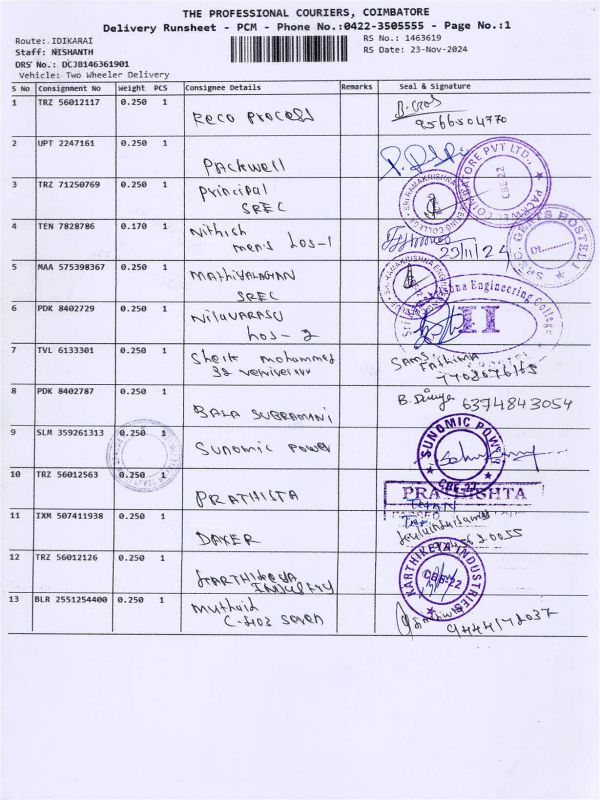 THE PROFESSIONAL COURIERS, COIMBATORE
Delivery Runsheet - PCM - Phone No.:0422-3505555 - Page No.:1
Route: IDIKARAI
RS No.: 1463619
Staff: NISHANTH
RS Date: 23-Nov-2024
DRS No.: DCJB146361901
Vehicle: Two Wheeler Delivery
S No Consignment No Weight PCS Consignee Details Remarks Seal & Signature
1 TRZ 56012117 0.250 1 Reco Process
9566504770
2 UPT 2247161 0.250 1 Packwell
COIMBATORE PVT LTD., CBE-22
3 TRZ 71250769 0.250 1 Principal
SREC
4 TEN 7828786 0.170 1 Nithish
men's hos-1
23/11/24
SREC. GENTS HOSTEL I
5 MAA 575398367 0.250 1 MATHIYALAGAN
SREC
6 PDK 8402729 0.250 1 Nilavarasu
hos-2
II
Engineering College
7 TVL 6133301 0.250 1 Sheik mohammed
32
Fathima
7708676165
8 PDK 8402787 0.250 1 BALA SUBRAMANI
B. Divya 6374843054
9 SLM 359261313 0.250 1 Sunomic Power
SUNOMIC POWER
CBE-22
10 TRZ 56012563 0.250 1 PRATHISTA
PRATHISHTA
11 IXM 507411938 0.250 1
12 TRZ 56012126 0.250 1 KARTHIKEYA
INDUSTRY
KARTHIKEYA INDUSTRIES
CBE-22
13 BLR 2551254400 0.250 1
C-403 seven